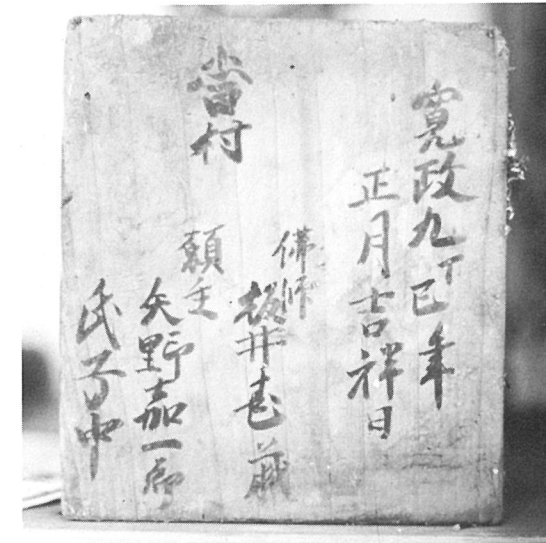 寛政九丁巳年
正月吉祥日
佛師
板井甚蔵
當村
願主
矢野嘉一郎
氏子中